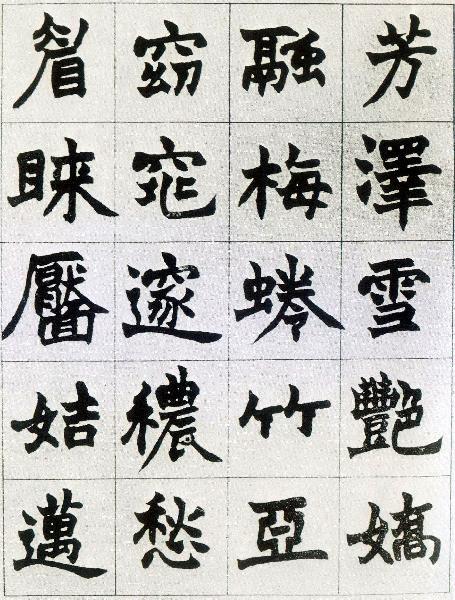 芳澤雪艷嬌
融梅蜷竹亞
窈窕邃穠愁
睂睞靨姞邁